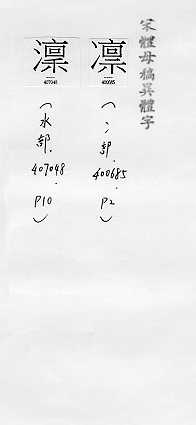 宋體母稿異體字
凛
400685
(冫部.
400685.
P2
)
澟
407048
(水部.
407048.
P10
)